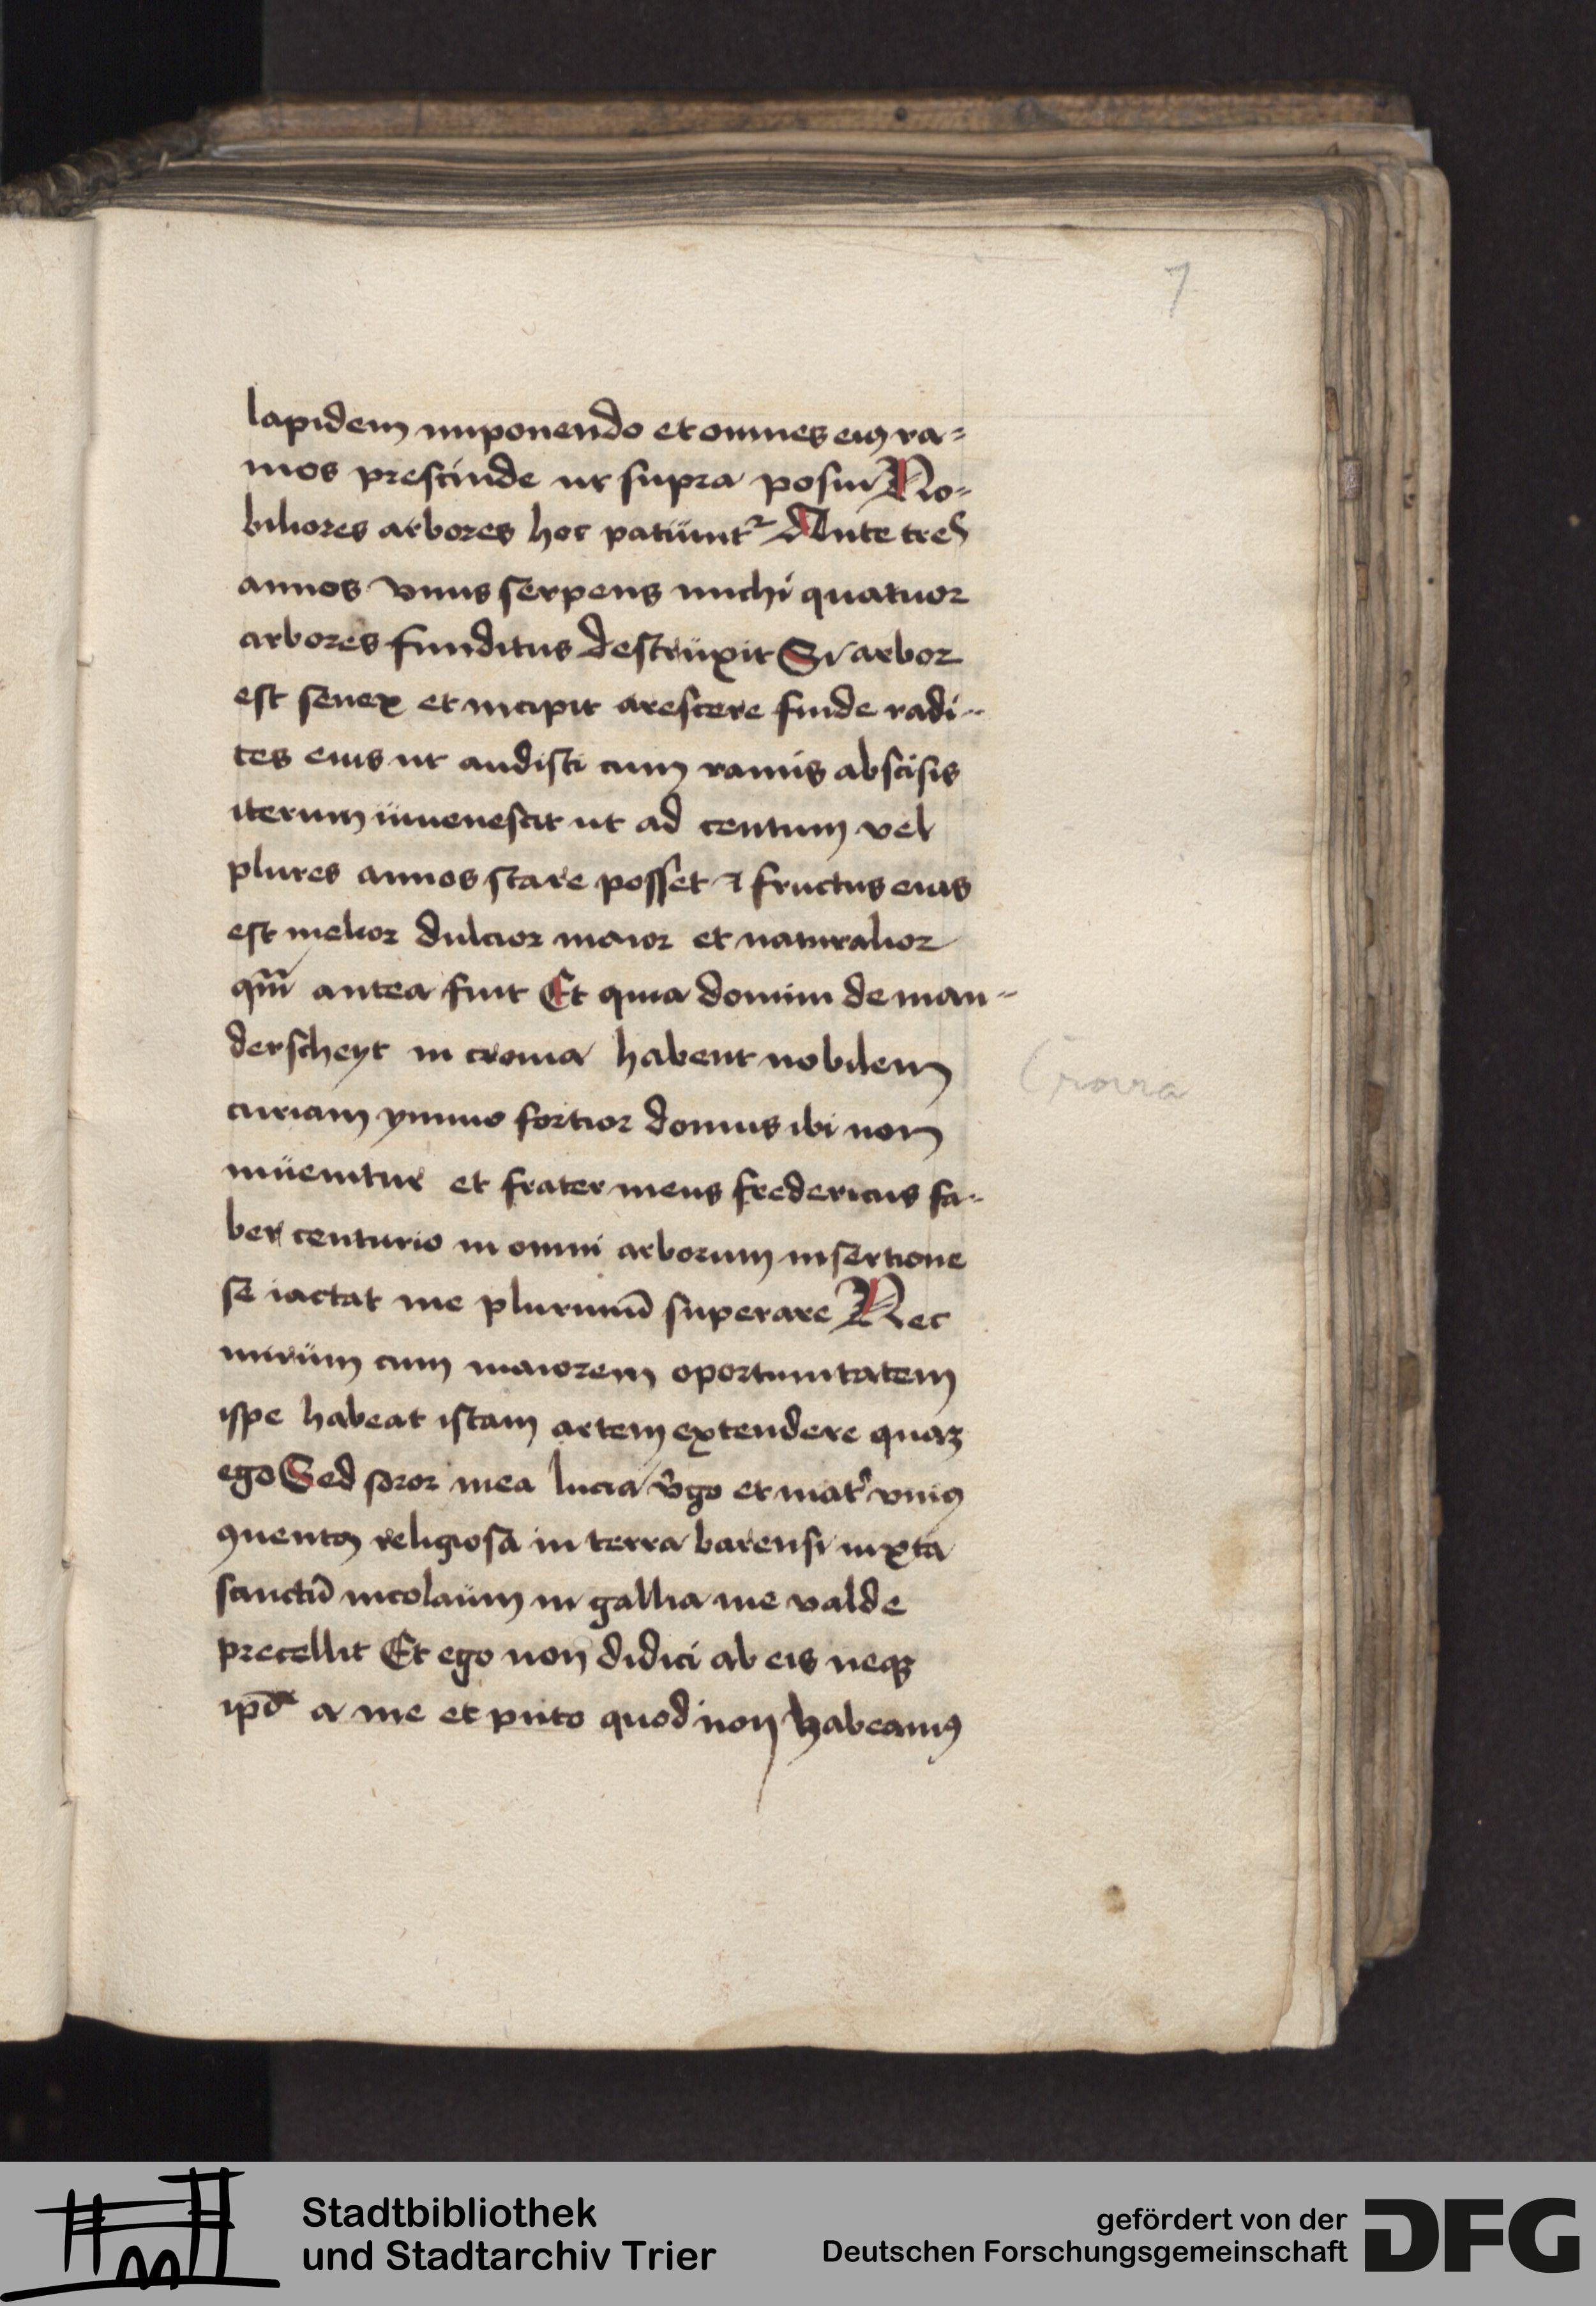 7
lapidem imponendo et omnes eiꝰ ra-
mos prescinde ut supra posui No-
biliores arbores hoc patiūtʳ Ante tres
annos vnus serpens michi quatuor
arbores funditus destruxit Si arbor
est senex et incipit arescere finde radi-
ces eius ut audisti cum ramis abscisis
iterum iuuenescit ut ad centum vel
plures annos stare posset ⁊ fructus eius
est melior dulcior maior et naturalior
qm̄ antea fuit Et quia domini de man-
derscheyt in crouia habent nobilem
curiam ymmo fortior domus ibi non
inuenitur et frater meus fredericus fa-
ber centurio in omni arborum insertione
se iactat me plurimū superare Nec
mirum cum maiorem oportunitatem
ipse habeat istam artem extendere quaꝫ
ego Sed soror mea lucia v̓go et mat̓ vniꝰ
ꝯuentꝰ religiosa in terra barensi iuxta
sanctū nicolaum in gallia me valde
precellit Et ego non didici ab eis neqꝫ
a me et puto quod non habeamꝰ
Crovia
Stadtbibliothek
und Stadtarchiv Trier
gefördert von der
Deutschen Forschungsgemeinschaft
DFG